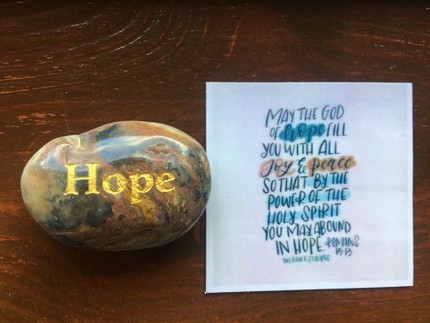 Hope
MAY THE GOD
OF hope FILL
YOU WITH ALL
JOY & peace
SO THAT BY THE
POWER OF THE
HOLY SPIRIT
YOU MAY ABOUND
IN HOPE. ROMANS
15:13